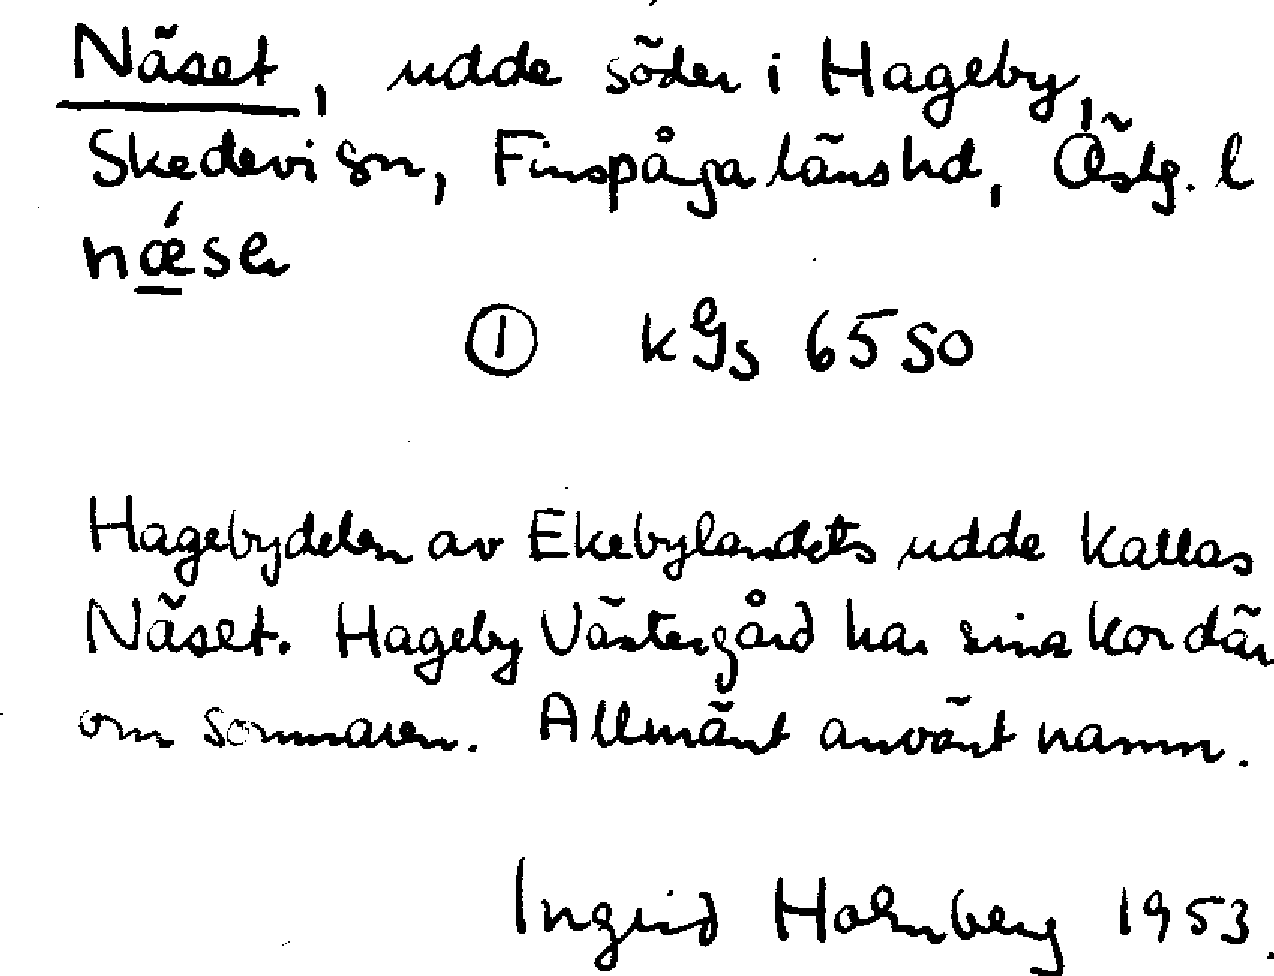 Näset, udde söder i Hageby,
Skedevi sn, Finspånga länshd, Östg. l
næ´se
① kgs 6550
Hagebydelen av Ekebylandets udde kallas
Näset. Hageby Västergård har sina kor där
om sommaren. Allmänt använt namn.
Ingrid Holmberg 1953.